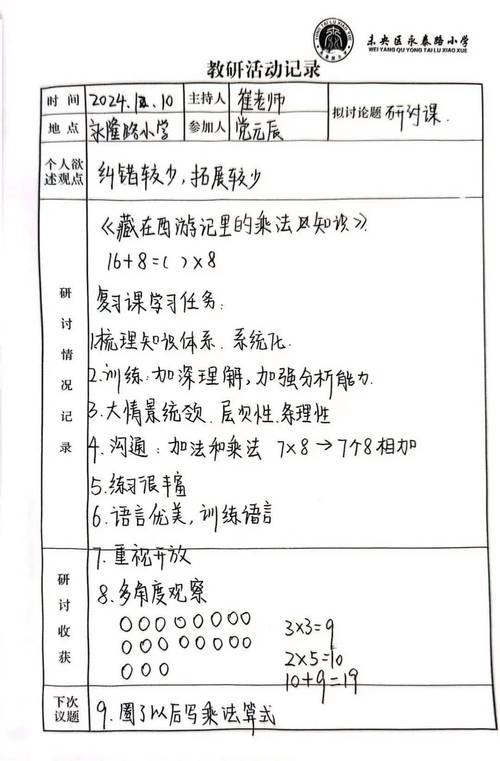 未央区永泰路小学
WEI YANG QU YONG TAI LU XIAO XUE
教研活动记录
时间 2024.12.10 主持人 崔老师 拟讨论题 研讨课.
地点 永隆路小学 参加人 党元辰
个人欲述观点 纠错较少,拓展较少
研讨情况记录
《藏在西游记里的乘法知识》
16+8=( )×8
复习课学习任务:
1.梳理知识体系.系统化.
2.训练:加深理解,加强分析能力.
3.大情景统领.层次性.条理性
4.沟通:加法和乘法 7×8→7个8相加
5.练习很丰富
6.语言优美,训练语言
7.重视开放
研讨收获
8.多角度观察
○○○○○○○○
○○○○○○○○ 3×3=9
○○○ 2×5=10
10+9=19
下次议题 9.圈了以后写乘法算式